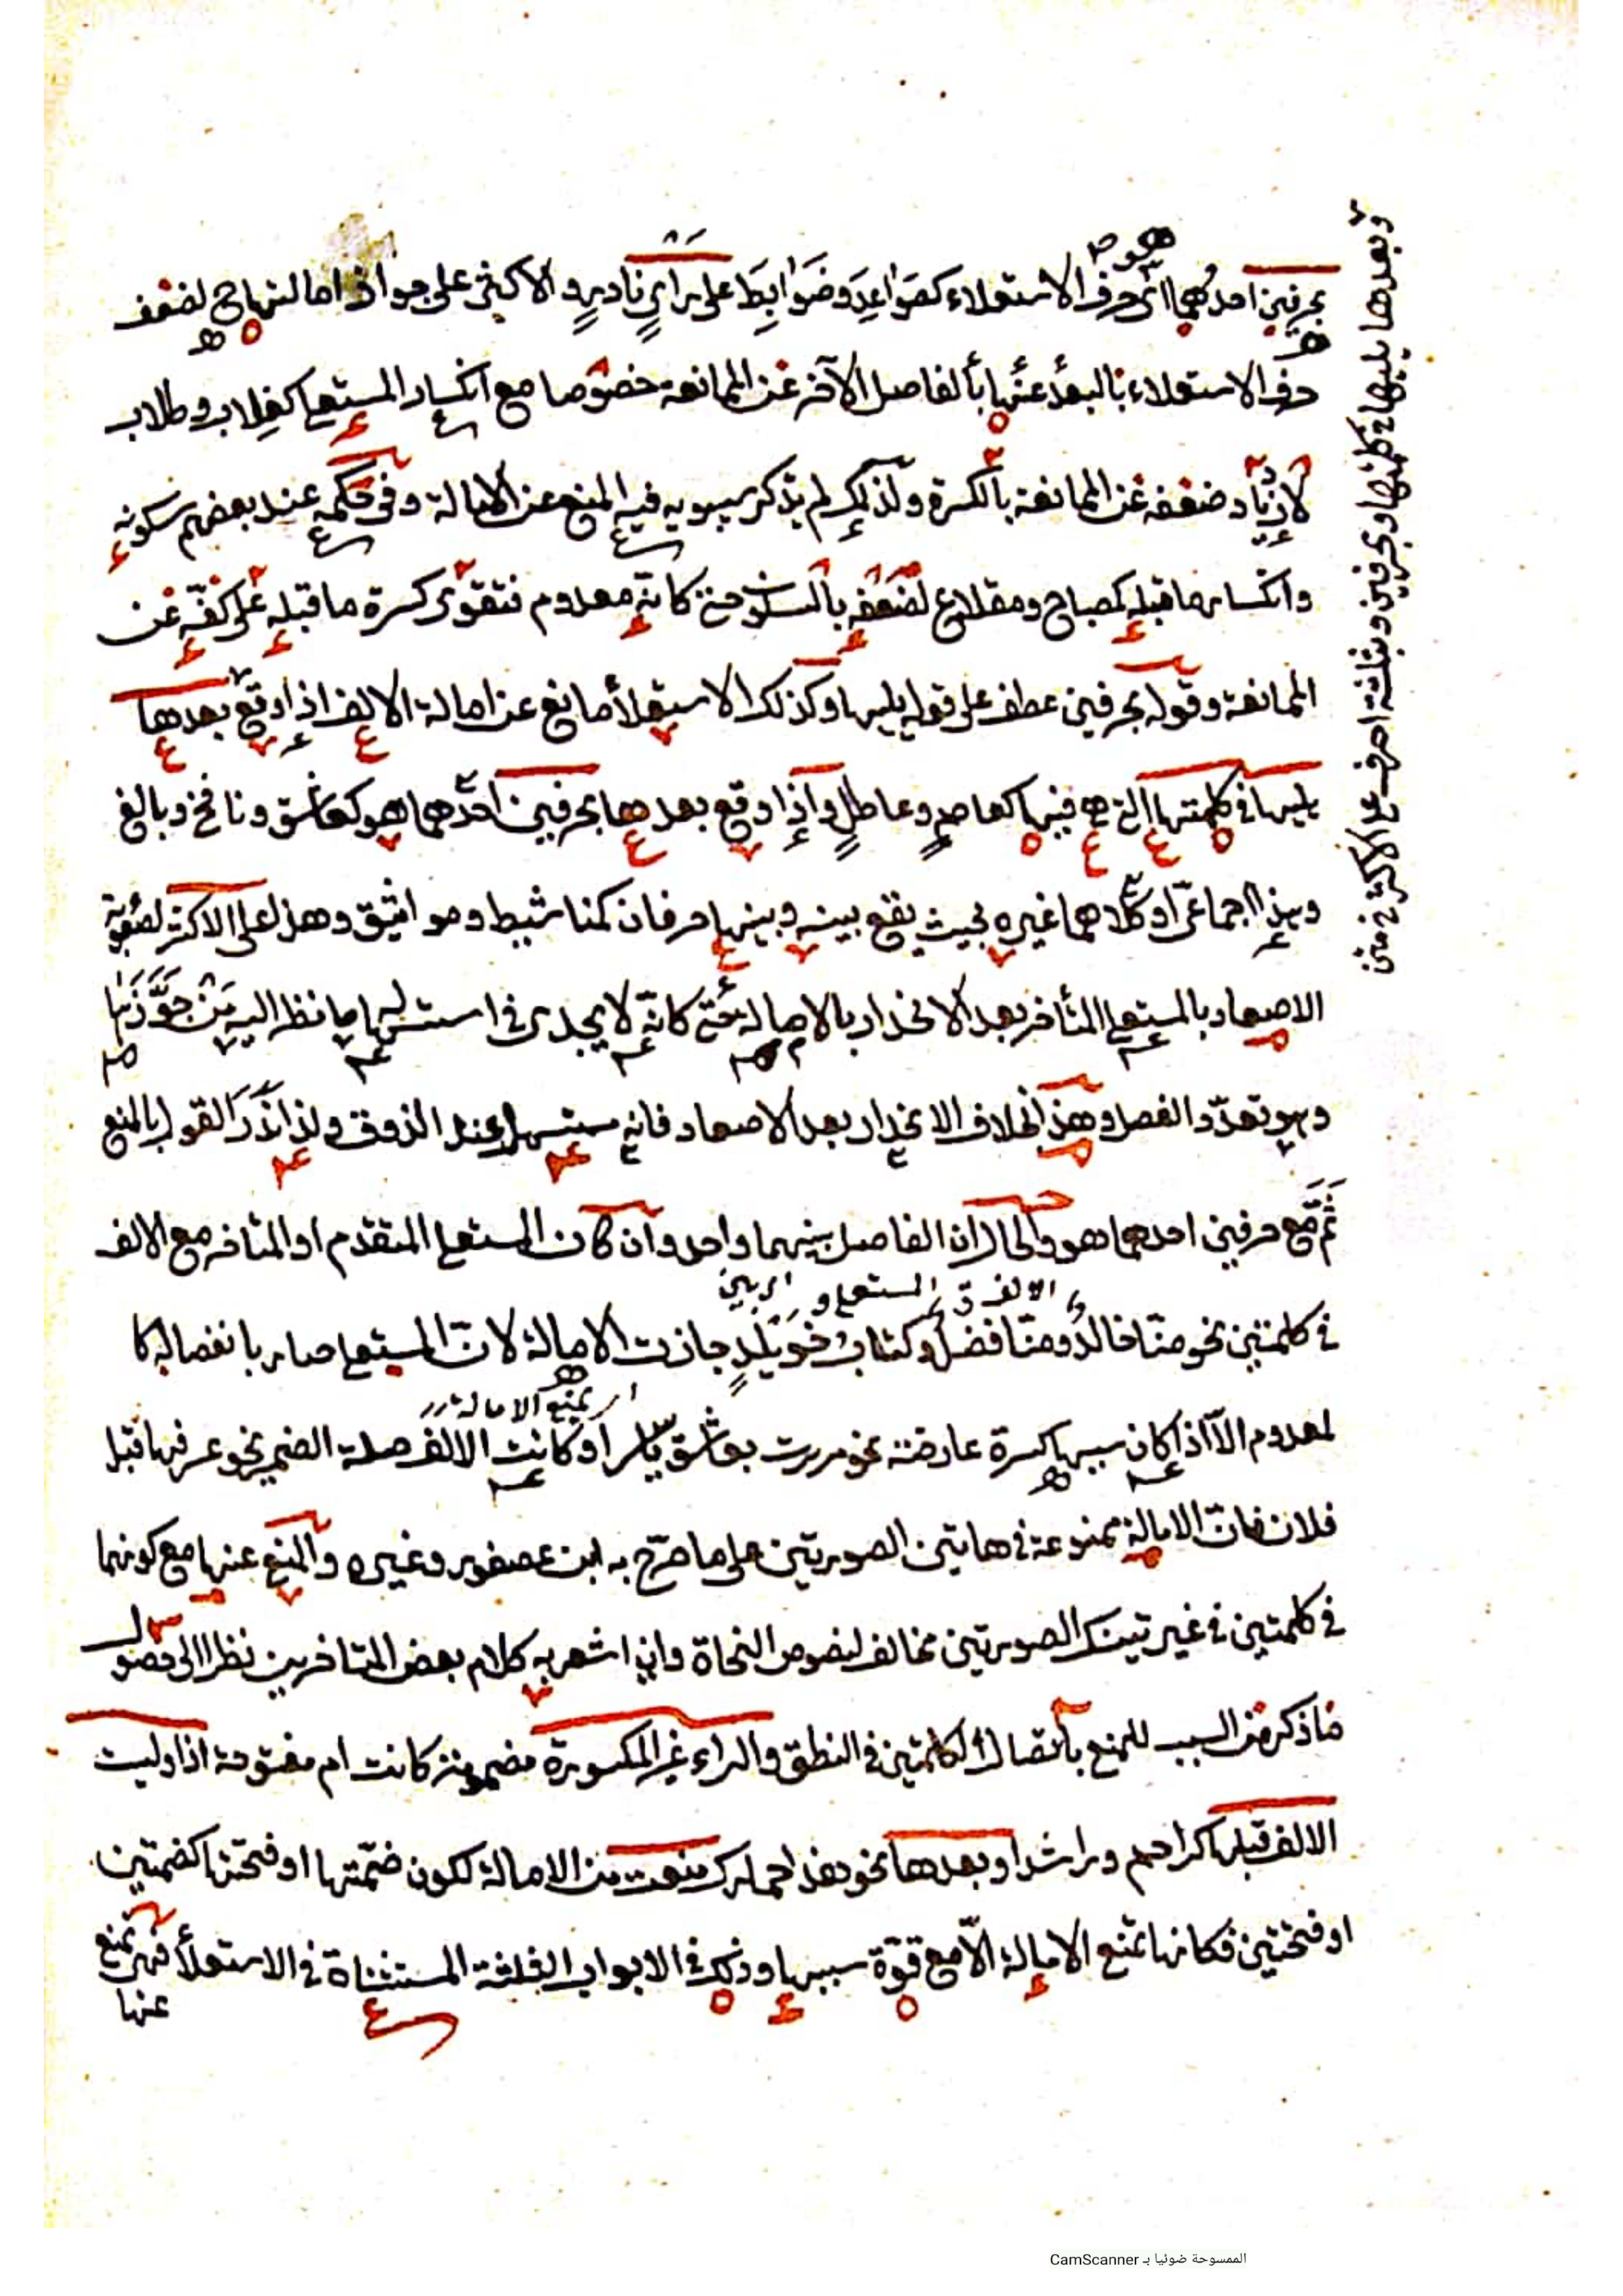 بحرفين احدهما اى حرف الاستعلاء كصَوَاعِدَ وضَوَابِطَ على رايٍ نادرٍ والاكثر على جواز امالتها لضعف
حرف الاستعلاء بالبعد عنها بالفاصل الآخر عن الممانعة خصوصا مع انكسار المستعلى كغِلاب وطلاب
لازدياد ضعفه عن الممانعة بالكسرة ولذلك لم يذكر سيبويه فيه المنع عن الامالة وفى حكمه عند بعضهم سكونه
وانكسار ما قبله كمصباح ومقلاع لضعفه بالسكون حتى كانّه معدوم فتقوى كسرة ما قبله على كفّه عن
الممانعة وقوله بحرفين عطف على قوله يليها وكذلك الاستعلا مانع عن امالة الالف اذا وقع بعدها
يليها فى كلمتها التى هى فيها كعاصمٍ وعاطلٍ واذا وقع بعدها بحرفين احدهما هو كعاشق ونافخ وبالغ
وهذا اجماعىّ او كلاهما غيره بحيث يقع بينه وبينها حرفان كمناشيط ومواثيق وهذا على الاكثر لصعوبة
الاصعاد بالمستعلى المتأخر بعد الانحدار بالامالة حتى كانّه لا يجدى فى استسهالها ما نظر اليه مَنْ جَوَّزَها
وهو تعدّد الفصل وهذا بخلاف الانحدار بعد الاصعاد فانه مستسهل عند الذوق ولذا نَدَرَ القول بالمنع
ثَمَّ مع حرفين احدهما هو والحال ان الفاصل بينهما واحد وان كان المستعلى المتقدم او المتاخر مع الالف
فى كلمتين نحو منّا خالد ومنّا فضل وكتابُ خُوَيْلِدٍ جازت الامالة لانّ المستعلى صار بانفصاله كا
لمعدوم الّا اذا كان سببها كسرة عارضة نحو مررت بعاشق او كانت الالف صلة الضمير نحو عرفها قبل
فلان فانّ الامالة ممنوعة فى هاتين الصورتين على ما صرّح به ابن عصفور وغيره والمنع عنها مع كونهما
فى كلمتين فى غير تينك الصورتين مخالف لنصوص النحاة وان اشعر به كلام بعض المتاخرين نظرا الى حصول
ما ذكر من السبب للمنع باتصال الكلمتين فى النطق والراء غير المكسورة مضمومة كانت ام مفتوحة اذا وليت
الالف قبلها كراحم وراشد او بعدها نحو هذا حمارك منعت من الامالة لكون ضمّتها او فتحتها كضمتين
او فتحتين فكانها تمنع الامالة الّا مع قوّة سببها وذلك فى الابواب المستثناة فى الاستعلا فهى تمنع
عنها
وبعدها يليها فى كلمتها وبحرفين وبثلثة احرف على الاكثر
الممسوحة ضوئيا بـ CamScanner